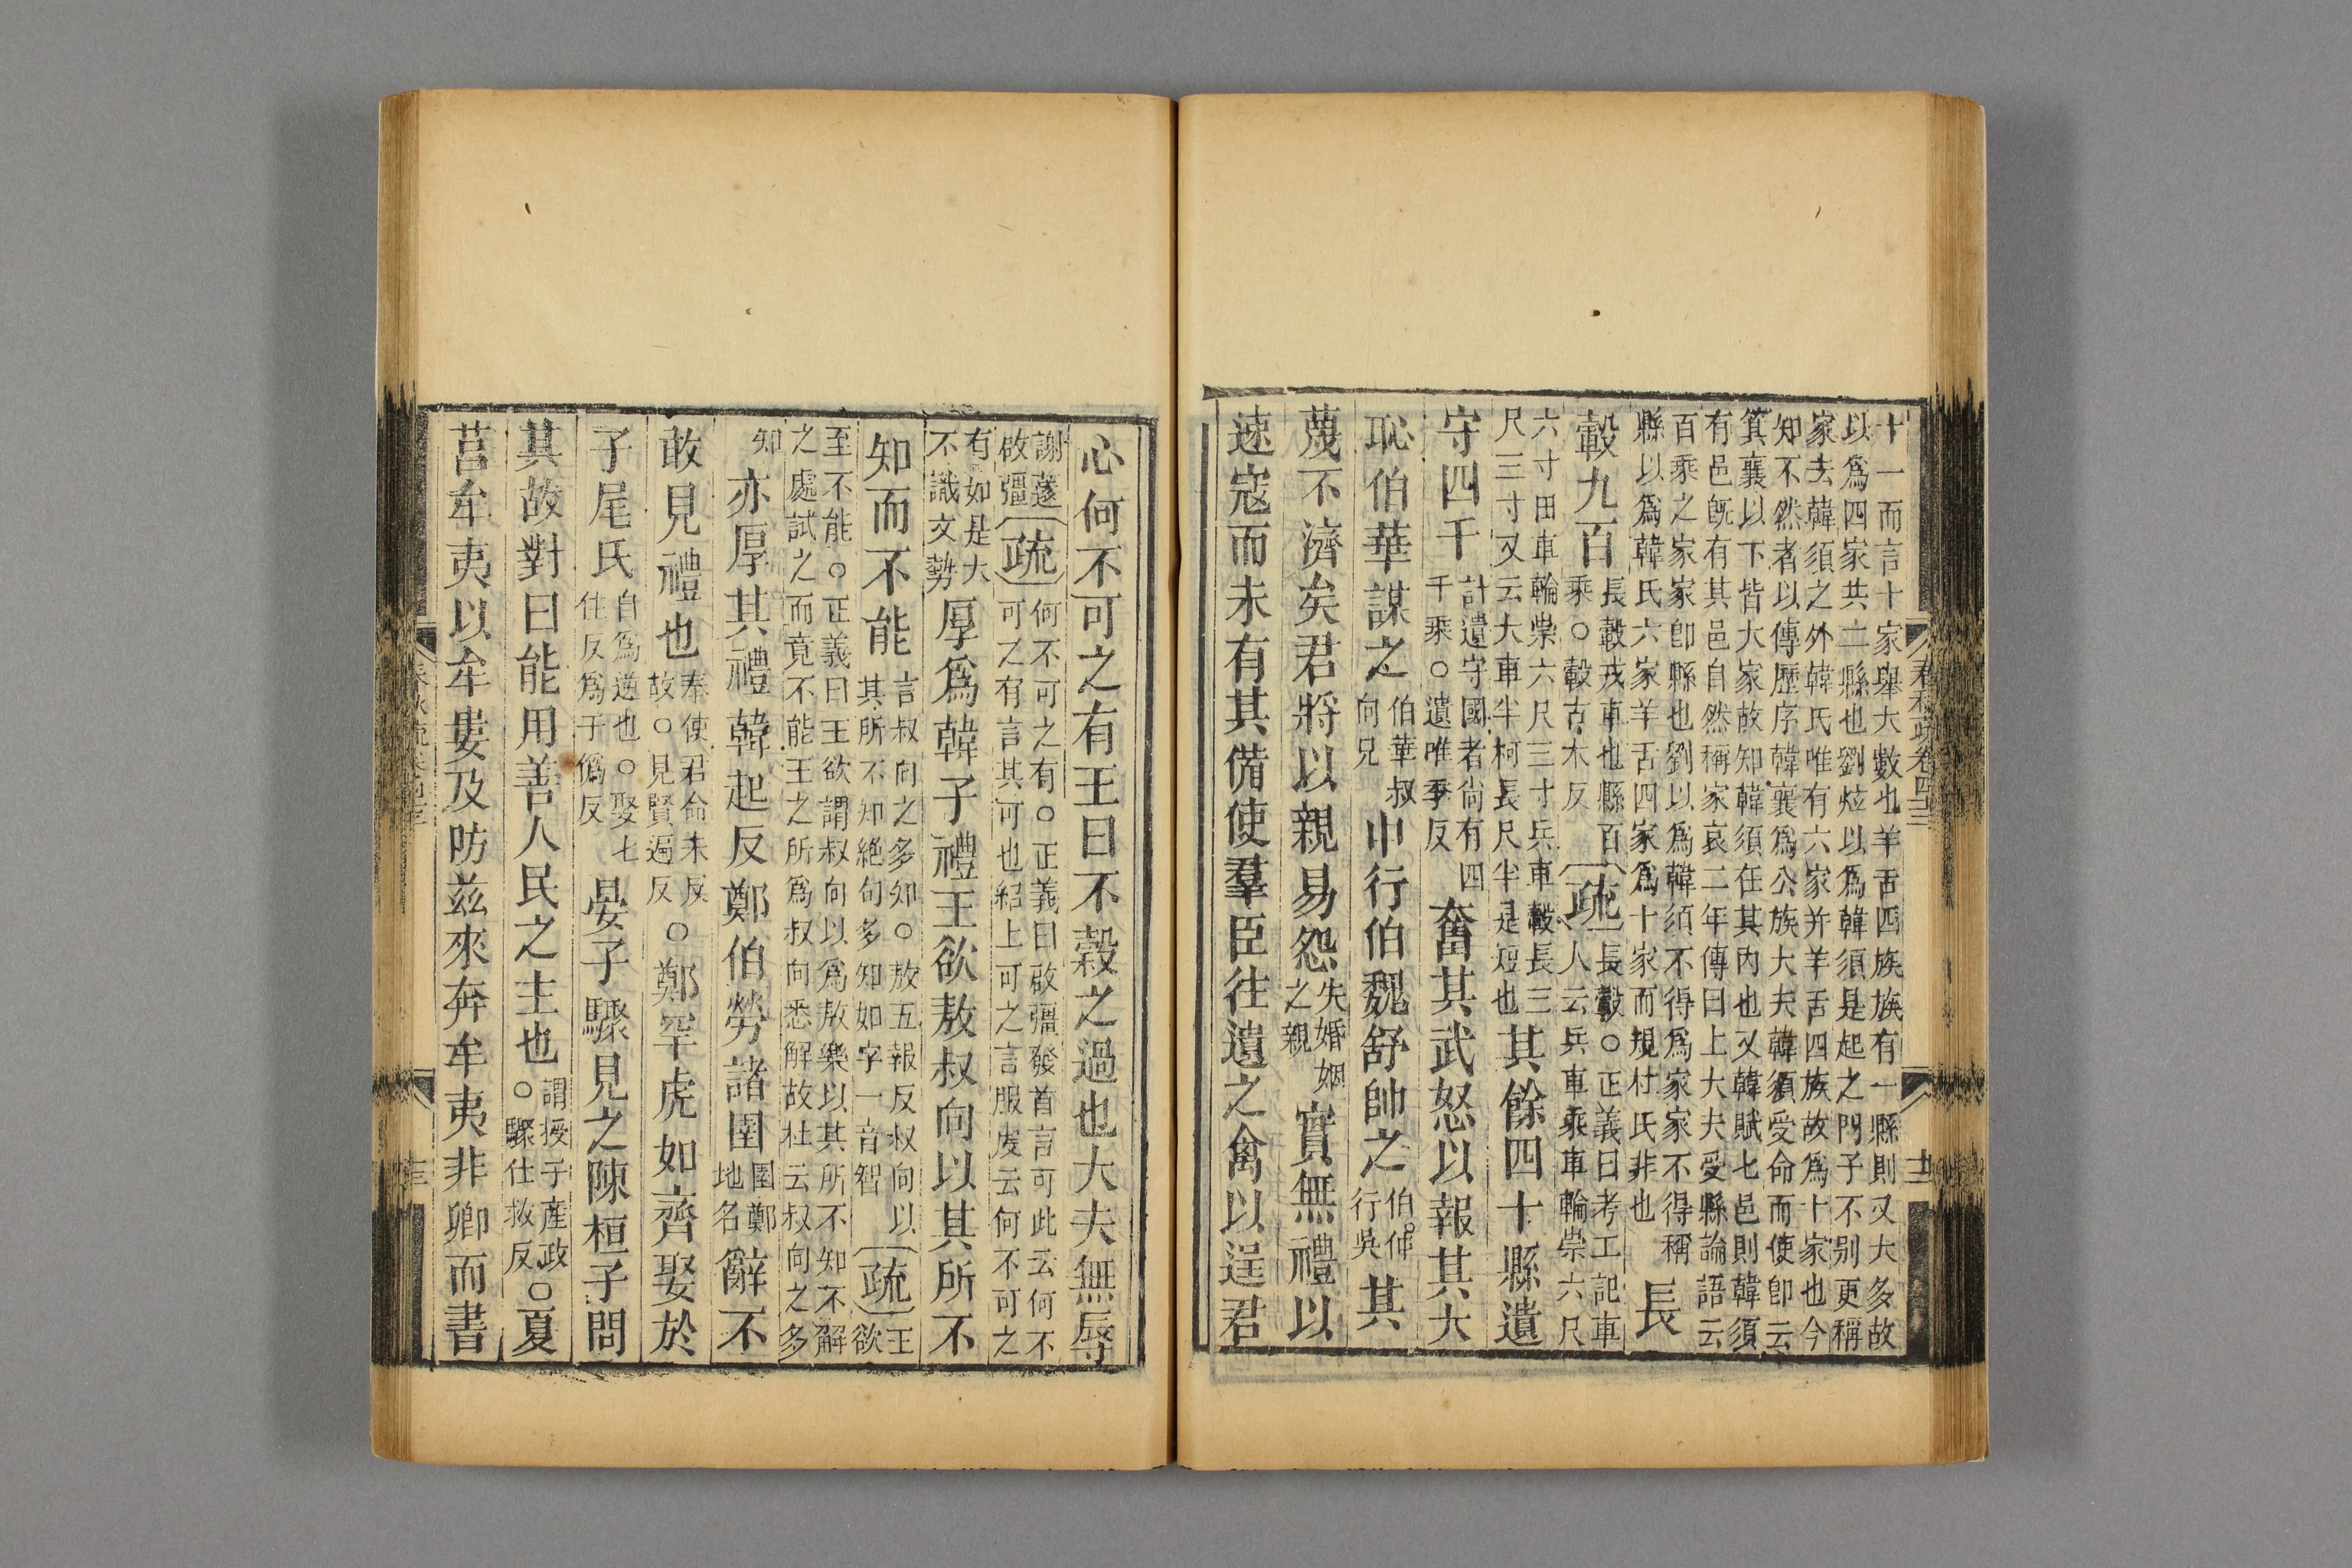 十一而言十家舉大數也羊舌四族族有一縣則又大多故
以爲四家共二縣也劉炫以爲韓須是起之門子不别更稱
家去韓須之外韓氏唯有六家并羊舌四族故爲十家也今
知不然者以傳歷序韓襄爲公族大夫韓須受命而使卽云
箕襄以下皆大家故知韓須在其內也又韓賦七邑則韓須
有邑旣有其邑自然稱家哀二年傳曰上大夫受縣論語云
百乘之家家卽縣也劉以爲韓須不得爲家家不得稱
縣以爲韓氏六家羊舌四家爲十家而規杜氏非也
長
轂九百
長轂戎車也縣百
乘○轂古木反
疏
長轂○正義曰考工記車
人云兵車乘車輪崇六尺
六寸田車輪崇六尺三寸兵車轂長三
尺三寸又云大車半柯長尺半是短也
其餘四十縣遺
守四千
計遺守國者尙有四
千乘○遺唯季反
奮其武怒以報其大
恥伯華謀之
伯華叔
向兄
中行伯魏舒帥之
伯中
行吳
其
蔑不濟矣君將以親易怨
失婚姻
之親
實無禮以
速寇而未有其備使羣臣往遺之禽以逞君
春秋疏卷四三
心何不可之有王曰不穀之過也大夫無辱
謝薳
啟彊
疏
何不可之有○正義曰啟彊發首言可此云何不
可之有言其可也紹上可之言服虔云何不可之
有如是大
不識文勢
厚爲韓子禮王欲敖叔向以其所不
知而不能
言叔向之多知○敖五報反叔向以
其所不知絶句多知如字一音智
疏
王
欲
至不能○正義曰王欲謂叔向以爲敖樂以其所不知不解
之處試之而竟不能王之所爲叔向悉解故杜云叔向之多
知
亦厚其禮韓起反鄭伯勞諸圉
圉鄭
地名
辭不
敢見禮也
奉使君命未反
故○見賢遍反
○鄭罕虎如齊娶於
子尾氏
自爲逆也○娶七
住反爲于僞反
晏子驟見之陳桓子問
其故對曰能用善人民之主也
謂授子產政
○驟仕救反
○夏
莒牟夷以牟婁及防茲來奔牟夷非卿而書